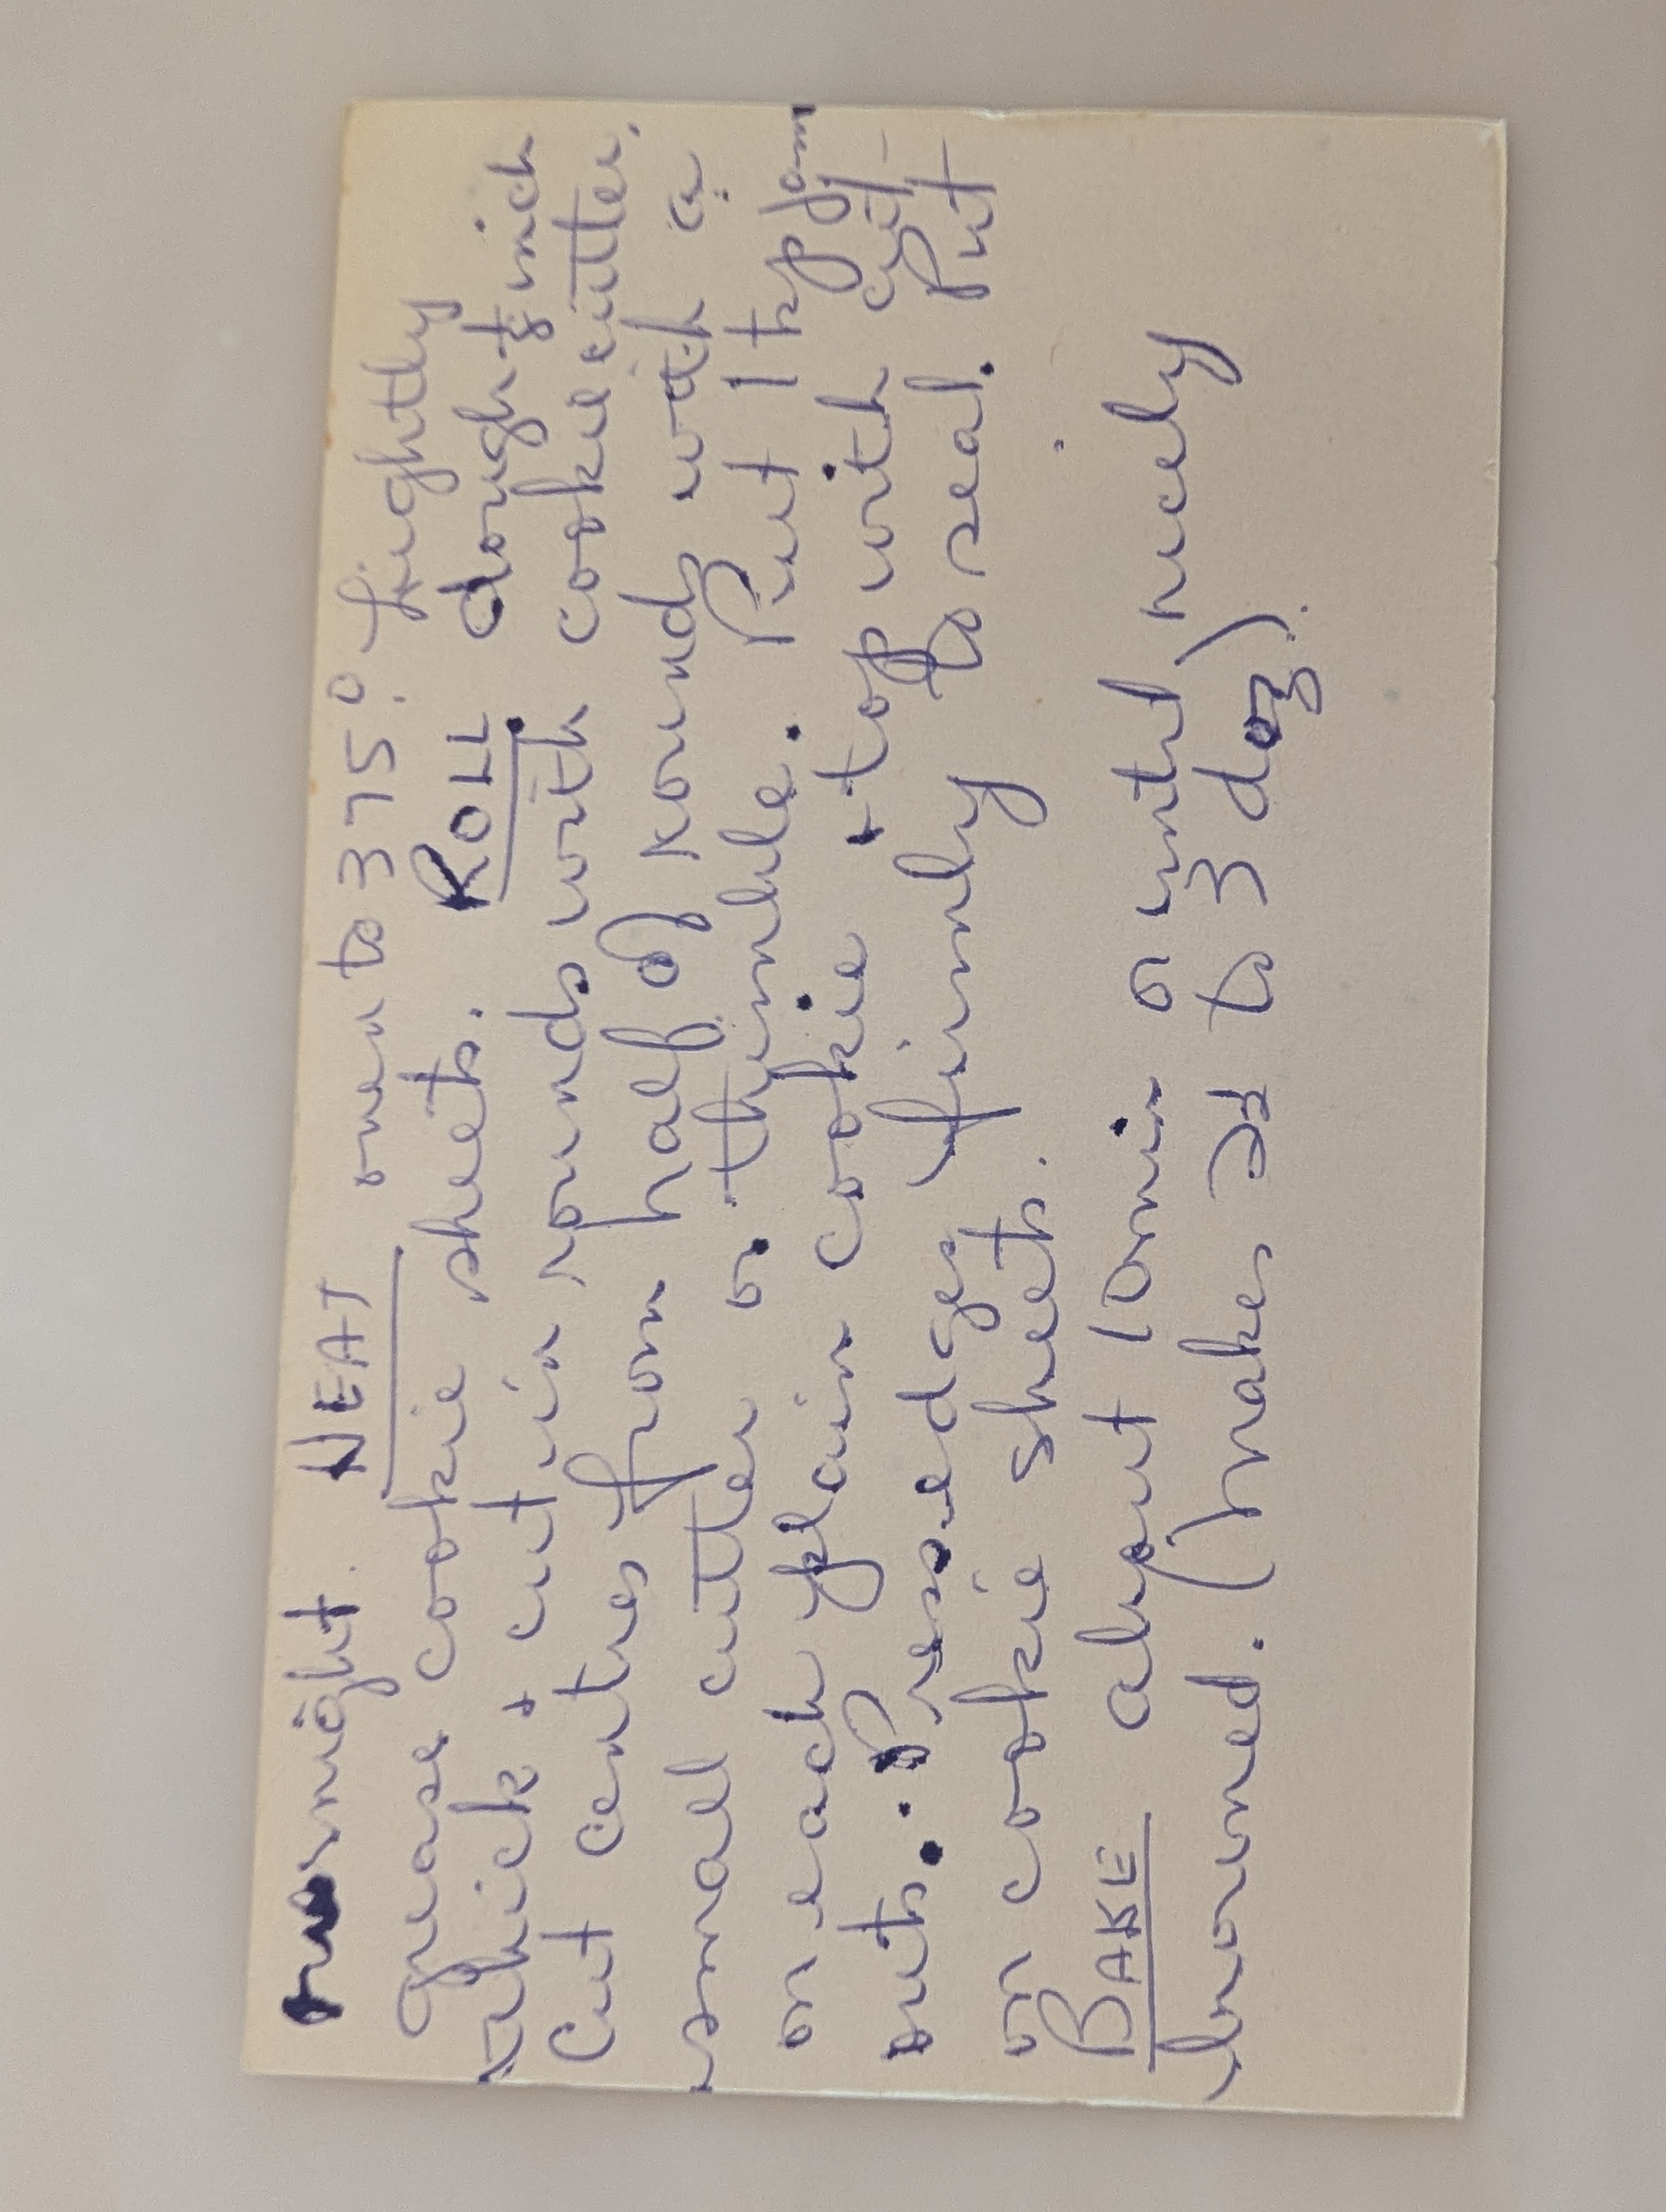 overnight. HEAT oven to 375°. Lightly
grease cookie sheets. ROLL dough 1/8 inch
thick + cut in rounds with cookie cutter.
Cut centres from half of rounds with a
small cutter or thimble. Put 1 tsp jam
on each plain cookie + top with cut-
outs. Press edges firmly to seal. Put
on cookie sheets.
BAKE about 10 min or until nicely
browned. (Makes 2½ to 3 doz).